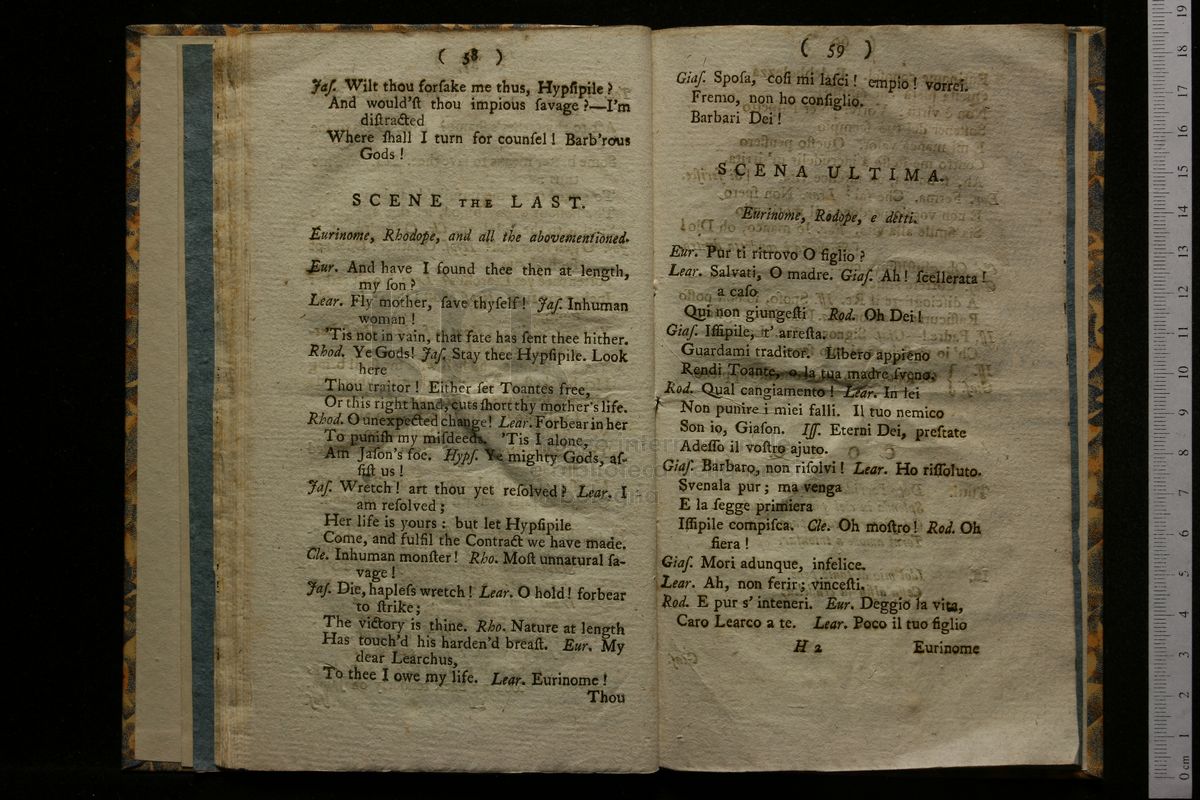 ( 58 )
Jaſ. Wilt thou forſake me thus, Hypſipile ?
And would'ſt thou impious ſavage ?—I'm
diſtracted
Where ſhall I turn for counſel ! Barb'rous
Gods !
SCENE THE LAST.
Eurinome, Rhodope, and all the abovementioned.
Eur. And have I found thee then at length,
my ſon ?
Lear. Fly mother, ſave thyſelf ! Jaſ. Inhuman
woman !
'Tis not in vain, that fate has ſent thee hither.
Rhod. Ye Gods! Jaſ. Stay thee Hypſipile. Look
here
Thou traitor ! Either ſet Toantes free,
Or this right hand, cuts ſhort thy mother's life.
Rhod. O unexpected change! Lear. Forbear in her
To puniſh my miſdeeds. 'Tis I alone,
Am Jaſon's foe. Hypſ. Ye mighty Gods, aſ-
ſiſt us !
Jaſ. Wretch ! art thou yet reſolved ? Lear. I
am reſolved ;
Her life is yours : but let Hypſipile
Come, and fulfil the Contract we have made.
Cle. Inhuman monſter ! Rho. Moſt unnatural ſa-
vage !
Jaſ. Die, hapleſs wretch ! Lear. O hold ! forbear
to ſtrike ;
The victory is thine. Rho. Nature at length
Has touch'd his harden'd breaſt. Eur. My
dear Learchus,
To thee I owe my life. Lear. Eurinome !
Thou
( 59 )
Giaſ. Spoſa, coſi mi laſci ! empio ! vorrei.
Fremo, non ho conſiglio.
Barbari Dei !
SCENA ULTIMA.
Eurinome, Rodope, e detti.
Eur. Pur ti ritrovo O figlio ?
Lear. Salvati, O madre. Giaſ. Ah! ſcellerata !
a caſo
Qui non giungeſti Rod. Oh Dei !
Giaſ. Iſſipile, t' arreſta.
Guardami traditor. Libero appieno
Rendi Toante, o la tua madre ſveno.
Rod. Qual cangiamento ! Lear. In lei
Non punire i miei falli. Il tuo nemico
Son io, Giaſon. Iſſ. Eterni Dei, preſtate
Adeſſo il voſtro ajuto.
Giaſ. Barbaro, non riſolvi ! Lear. Ho riſſoluto.
Svenala pur ; ma venga
E la ſegge primiera
Iſſipile compiſca. Cle. Oh moſtro ! Rod. Oh
fiera !
Giaſ. Mori adunque, infelice.
Lear. Ah, non ferir ; vinceſti.
Rod. E pur s' inteneri. Eur. Deggio la vita,
Caro Learco a te. Lear. Poco il tuo figlio
H 2 Eurinome